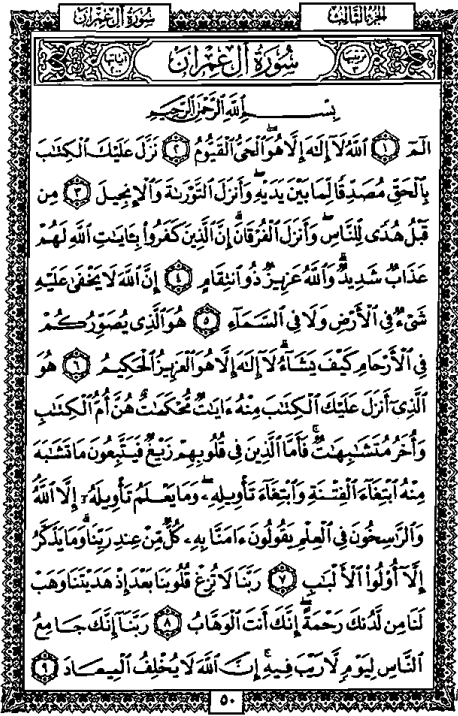 الجزء الثالث
سورة آل عمران
ترتيبها ٣
سُورَةُ آلِ عِمْرَانَ
آياتها ٢٠٠
بِسْمِ اللَّهِ الرَّحْمَٰنِ الرَّحِيمِ
الٓمٓ ١ ٱللَّهُ لَآ إِلَٰهَ إِلَّا هُوَ ٱلْحَىُّ ٱلْقَيُّومُ ٢ نَزَّلَ عَلَيْكَ ٱلْكِتَٰبَ
بِٱلْحَقِّ مُصَدِّقًا لِّمَا بَيْنَ يَدَيْهِ وَأَنزَلَ ٱلتَّوْرَىٰةَ وَٱلْإِنجِيلَ ٣ مِن
قَبْلُ هُدًى لِّلنَّاسِ وَأَنزَلَ ٱلْفُرْقَانَ ۗ إِنَّ ٱلَّذِينَ كَفَرُوا۟ بِـَٔايَٰتِ ٱللَّهِ لَهُمْ
عَذَابٌ شَدِيدٌ ۗ وَٱللَّهُ عَزِيزٌ ذُو ٱنتِقَامٍ ٤ إِنَّ ٱللَّهَ لَا يَخْفَىٰ عَلَيْهِ
شَىْءٌ فِى ٱلْأَرْضِ وَلَا فِى ٱلسَّمَآءِ ٥ هُوَ ٱلَّذِى يُصَوِّرُكُمْ
فِى ٱلْأَرْحَامِ كَيْفَ يَشَآءُ ۚ لَآ إِلَٰهَ إِلَّا هُوَ ٱلْعَزِيزُ ٱلْحَكِيمُ ٦ هُوَ
ٱلَّذِىٓ أَنزَلَ عَلَيْكَ ٱلْكِتَٰبَ مِنْهُ ءَايَٰتٌ مُّحْكَمَٰتٌ هُنَّ أُمُّ ٱلْكِتَٰبِ
وَأُخَرُ مُتَشَٰبِهَٰتٌ ۖ فَأَمَّا ٱلَّذِينَ فِى قُلُوبِهِمْ زَيْغٌ فَيَتَّبِعُونَ مَا تَشَٰبَهَ
مِنْهُ ٱبْتِغَآءَ ٱلْفِتْنَةِ وَٱبْتِغَآءَ تَأْوِيلِهِۦ ۗ وَمَا يَعْلَمُ تَأْوِيلَهُۥٓ إِلَّا ٱللَّهُ ۗ
وَٱلرَّٰسِخُونَ فِى ٱلْعِلْمِ يَقُولُونَ ءَامَنَّا بِهِۦ كُلٌّ مِّنْ عِندِ رَبِّنَا ۗ وَمَا يَذَّكَّرُ
إِلَّآ أُو۟لُوا۟ ٱلْأَلْبَٰبِ ٧ رَبَّنَا لَا تُزِغْ قُلُوبَنَا بَعْدَ إِذْ هَدَيْتَنَا وَهَبْ
لَنَا مِن لَّدُنكَ رَحْمَةً ۚ إِنَّكَ أَنتَ ٱلْوَهَّابُ ٨ رَبَّنَآ إِنَّكَ جَامِعُ
ٱلنَّاسِ لِيَوْمٍ لَّا رَيْبَ فِيهِ ۚ إِنَّ ٱللَّهَ لَا يُخْلِفُ ٱلْمِيعَادَ ٩
٥٠